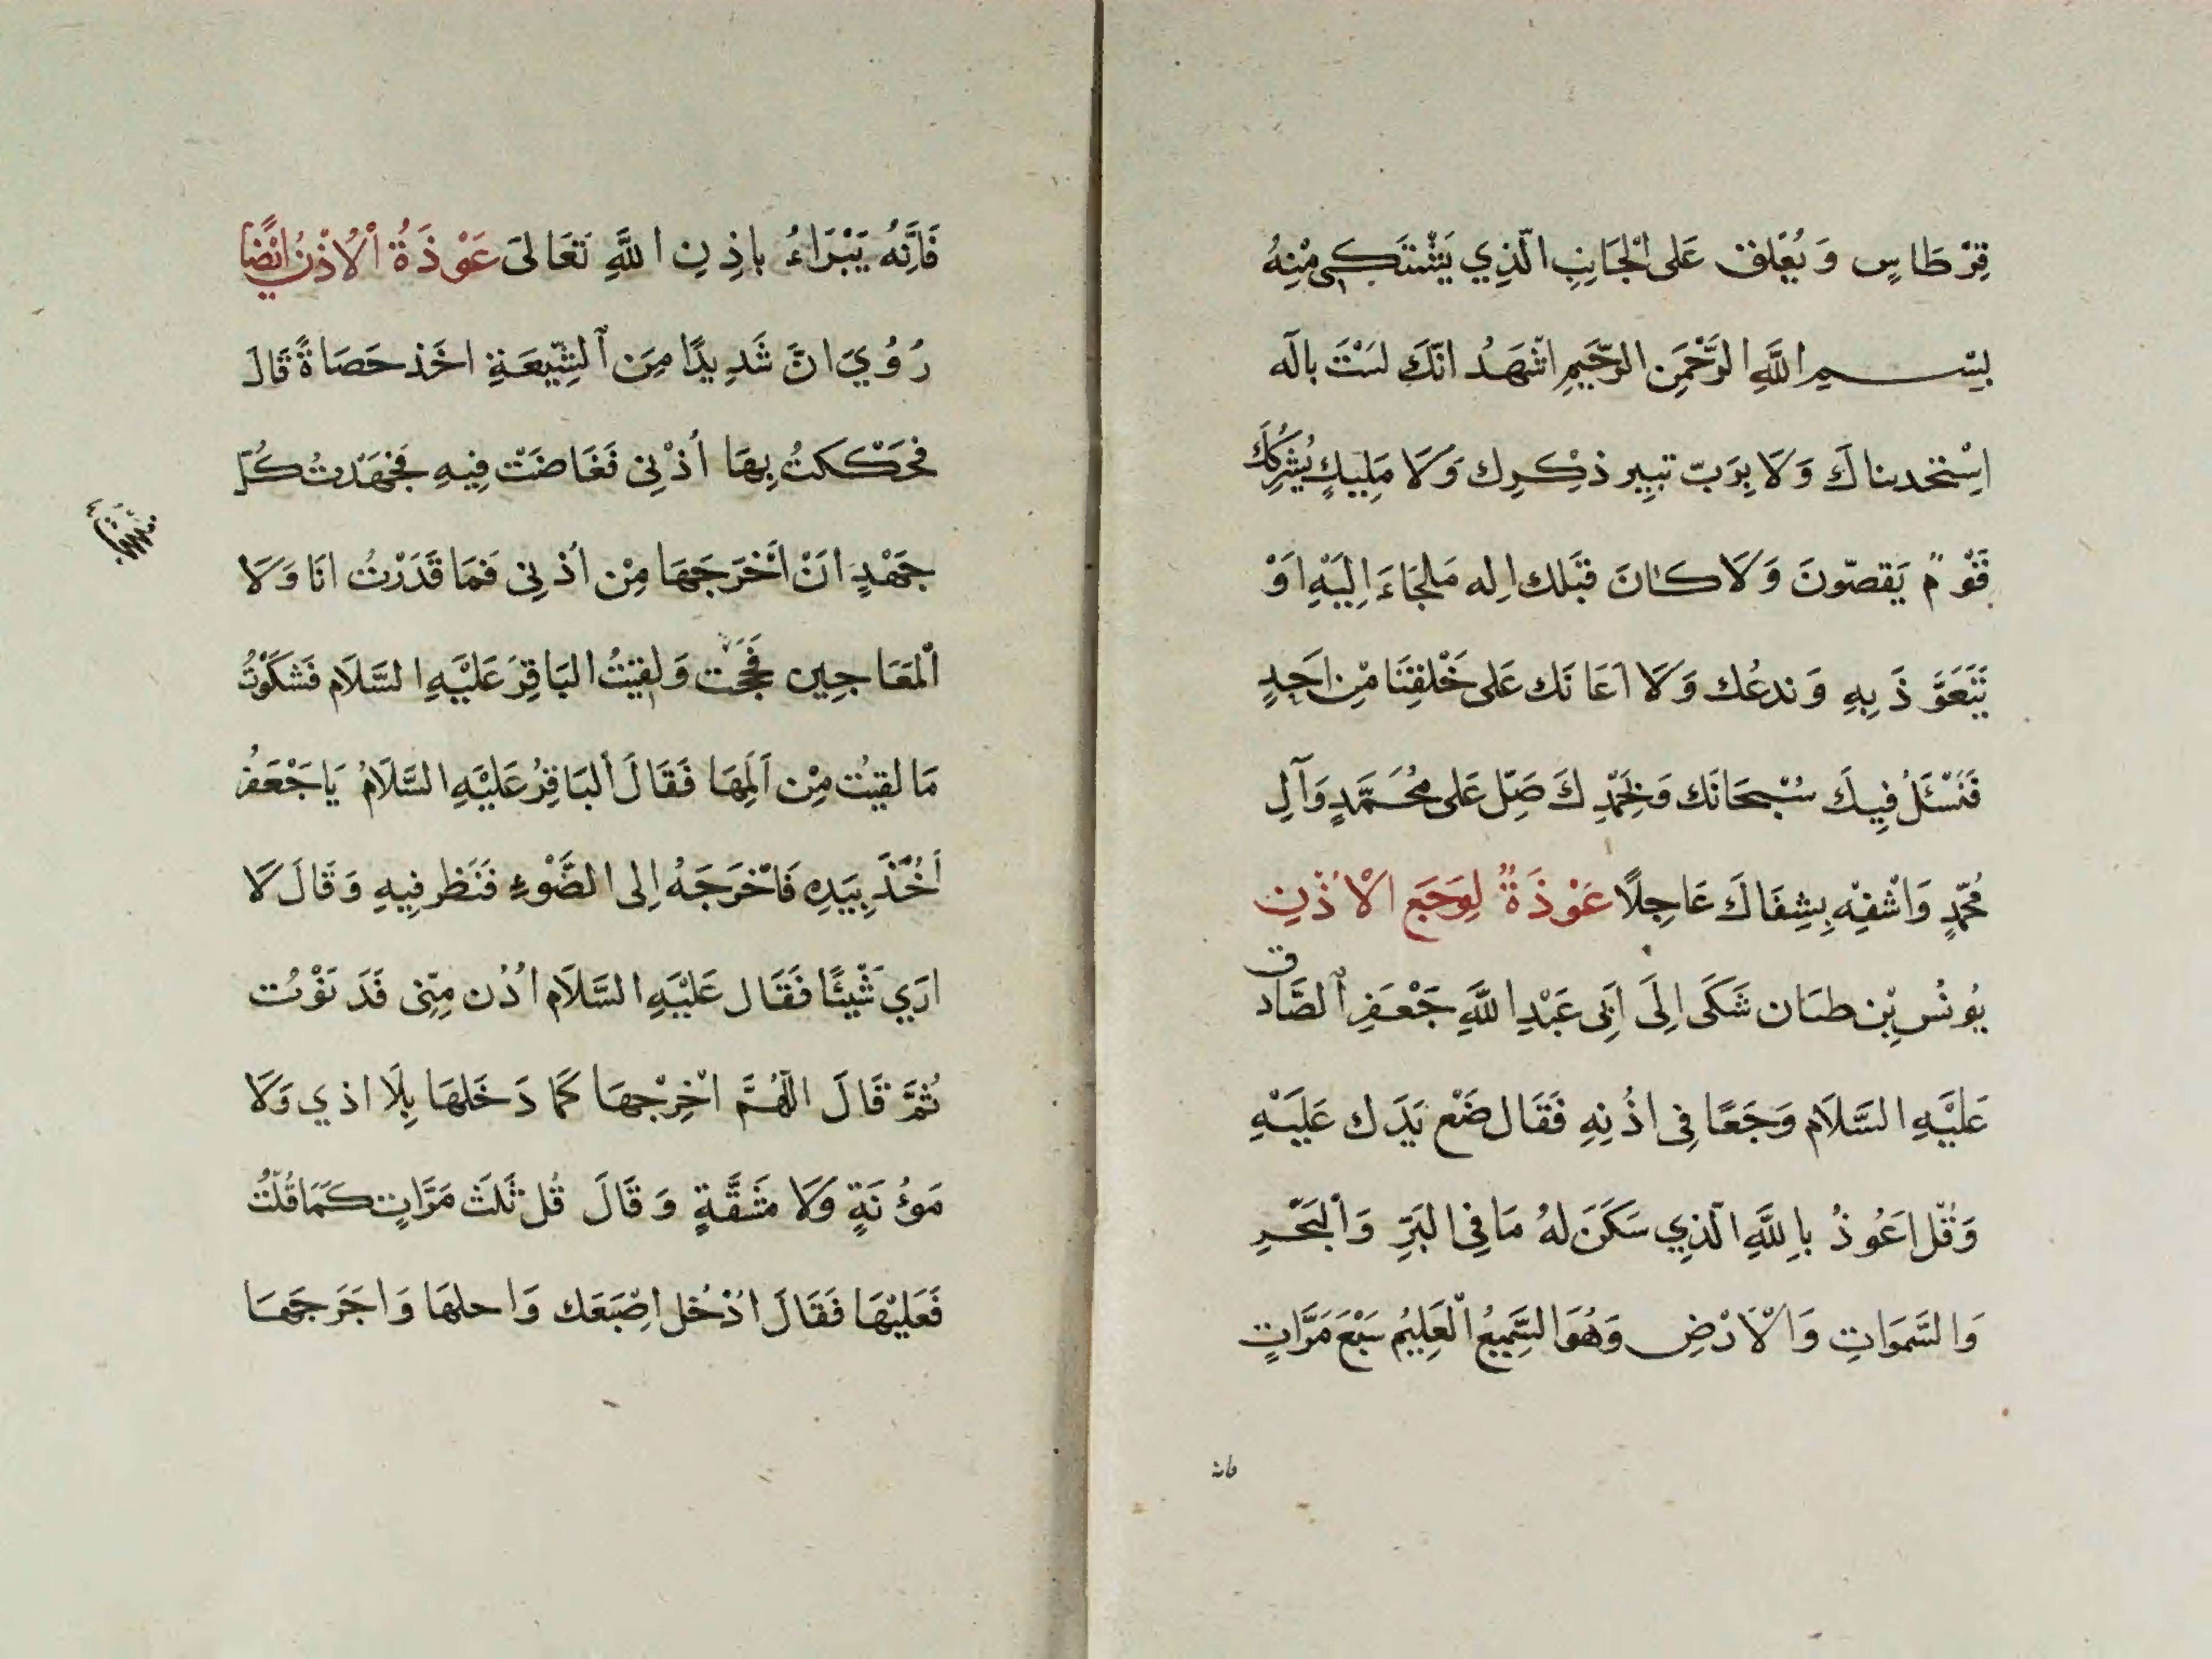 قِرْطَاسٍ وَيُعَلَّق عَلَى الْجَانِبِ الَّذِي يَشْتَكِي مِنْهُ
بِسْمِ اللَّهِ الرَّحْمَنِ الرَّحِيمِ اَشْهَدُ انَّكَ لَسْتَ بالَه
اِسْتَحْدَثنَاكَ وَلَا بِرَبّ يَبِير ذِكْرِك وَلَا مَلِيكٍ يُشْرِكُكَ
قَوْمٌ يَقصّونَ وَلَا كَانَ قَبْلك اِله مَلجَاءَ اِلَيْهِ اَوْ
نَتَعَوَّذَ بِهِ وَندعُك وَلَا اَعَانَك عَلى خَلْقِنَا مِنْ اَحَدٍ
فَنَسْئَلُ فِيكَ سُبْحَانَك وَبِحَمْدِكَ صَلِّ عَلى مُحَمَّدٍ وَآلِ
مُحَمّدٍ وَاشْفِهِ بِشِفَاكَ عَاجِلًا عَوْذَةٌ لِوَجَعِ الْاُذُنِ
يُونُس بْنِ طبَيَان شَكَى اِلَى اَبِى عَبْدِ اللَّهِ جَعْفَرِ الصَّادق
عَلَيْهِ السَّلَام وَجَعًا فِى اُذُنِهِ فَقَال ضَعْ يَدَك عَلَيْهِ
وَقُل اَعُوذُ بِاللَّهِ الَّذِي سَكَنَ لَهُ مَا فِى الْبَرِّ وَالْبَحْرِ
وَالسَّمَوَاتِ وَالْاَرْضِ وَهُوَ السَّمِيعُ الْعَلِيمُ سَبْعَ مَرَّاتٍ
فَاِنَّهُ يَبْرَاءُ بِاذِنِ اللَّهِ تَعَالَى عَوْذَةُ الْاُذْنِ اَيْضًا
رُوُيَ انَّ شَدِيدًا مِنَ الشِّيعَةِ اخَذ حَصَاةً قَالَ
فَحَكَكتُ بِهَا اُذْنِى فَغَاضَتْ فِيهِ فَجَهَدتُ كُلّ
جَهْدٍ انْ اَخْرَجَهَا مِنْ اُذْنِى فَمَا قَدَرْتُ انَا وَلَا
الْمَعَاجِين فَحَجَجْت وَلَقِيتُ البَاقِرَ عَلَيْهِ السَّلَام فَشَكَوْتُ
مَا لقِيْت مِنْ اَلَمِهَا فَقَالَ الْبَاقِرُ عَلَيْهِ السَّلَامُ يَا جَعْفَرُ
اَخُذْ بِيَدِهِ فَاخْرَجَهُ اِلى الضَّوْءِ فَنَظَر فِيهِ وَقَالَ لَا
ارَي شَيْئًا فَقَال عَلَيْهِ السَّلَام اُدْن مِنِّى فَدَنَوْت
ثُمَّ قَالَ اللَّهُمَّ اخْرِجْهَا كَمَا دَخَلهَا بِلَا اذي وَلَا
مَؤُنَةٍ وَلَا مَشَقَّةٍ وَقَالَ قُل ثَلَثَ مَرَّاتٍ كَمَا قُلْتُ
فَعَليْهَا فَقَالَ ادْخُل اِصْبَعَك وَاحلهَا وَاخَرجَهَا